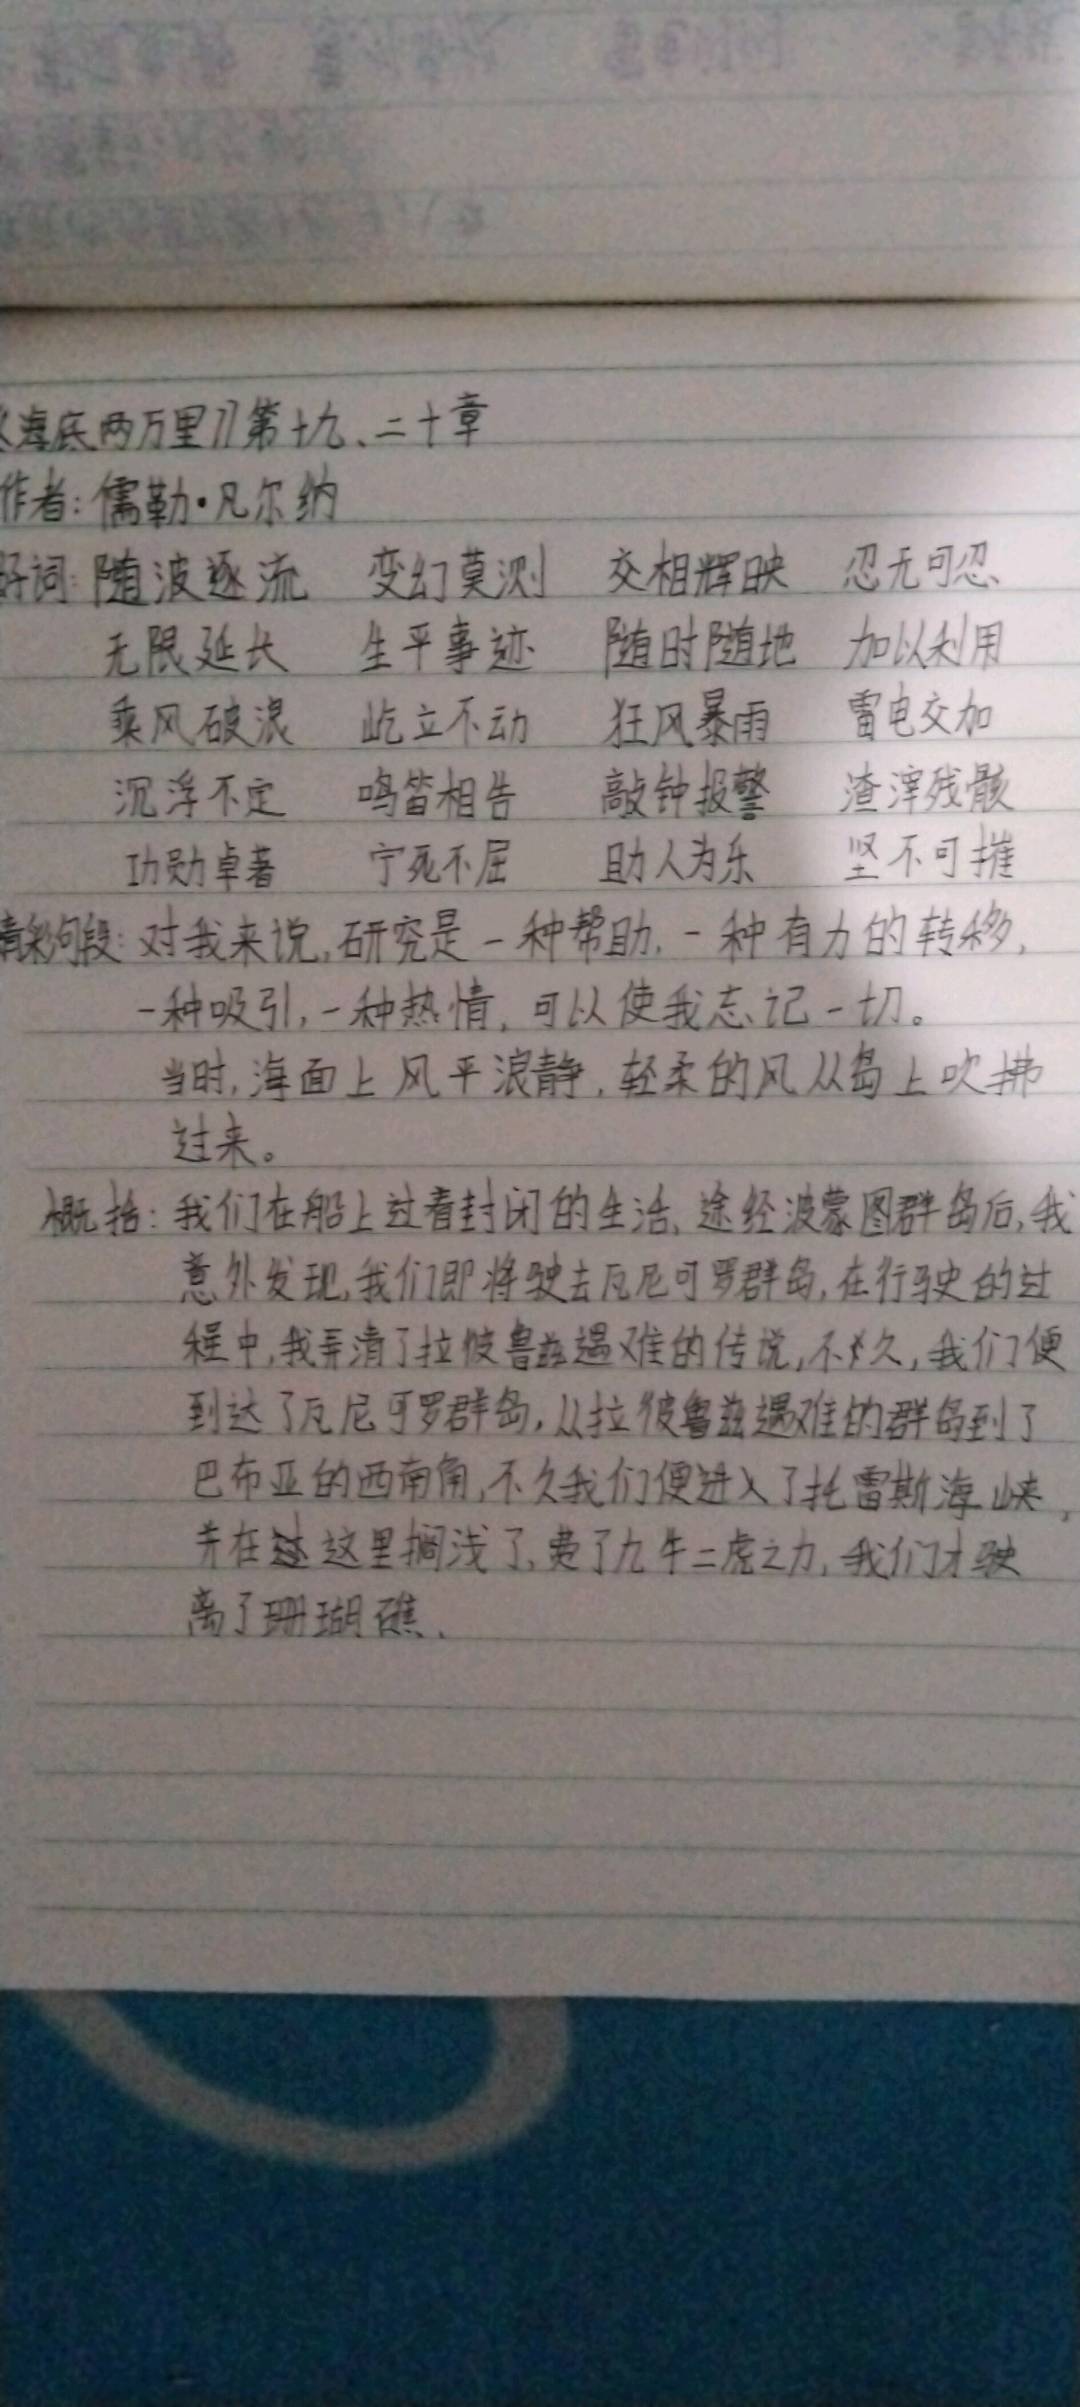 《海底两万里》第十九、二十章
作者：儒勒·凡尔纳
好词：随波逐流 变幻莫测 交相辉映 忍无可忍
无限延长 生平事迹 随时随地 加以利用
乘风破浪 屹立不动 狂风暴雨 雷电交加
沉浮不定 鸣笛相告 敲钟报警 渣滓残骸
功勋卓著 宁死不屈 助人为乐 坚不可摧
精彩句段：对我来说，研究是一种帮助，一种有力的转移，
一种吸引，一种热情，可以使我忘记一切。
当时，海面上风平浪静，轻柔的风从岛上吹拂
过来。
概括：我们在船上过着封闭的生活，途经波蒙图群岛后，我
意外发现，我们即将驶去瓦尼可罗群岛，在行驶的过
程中，我弄清了拉彼鲁兹遇难的传说，不久，我们便
到达了瓦尼可罗群岛，从拉彼鲁兹遇难的群岛到了
巴布亚的西南角，不久我们便进入了托雷斯海峡，
并在这里搁浅了，费了九牛二虎之力，我们才驶
离了珊瑚礁．